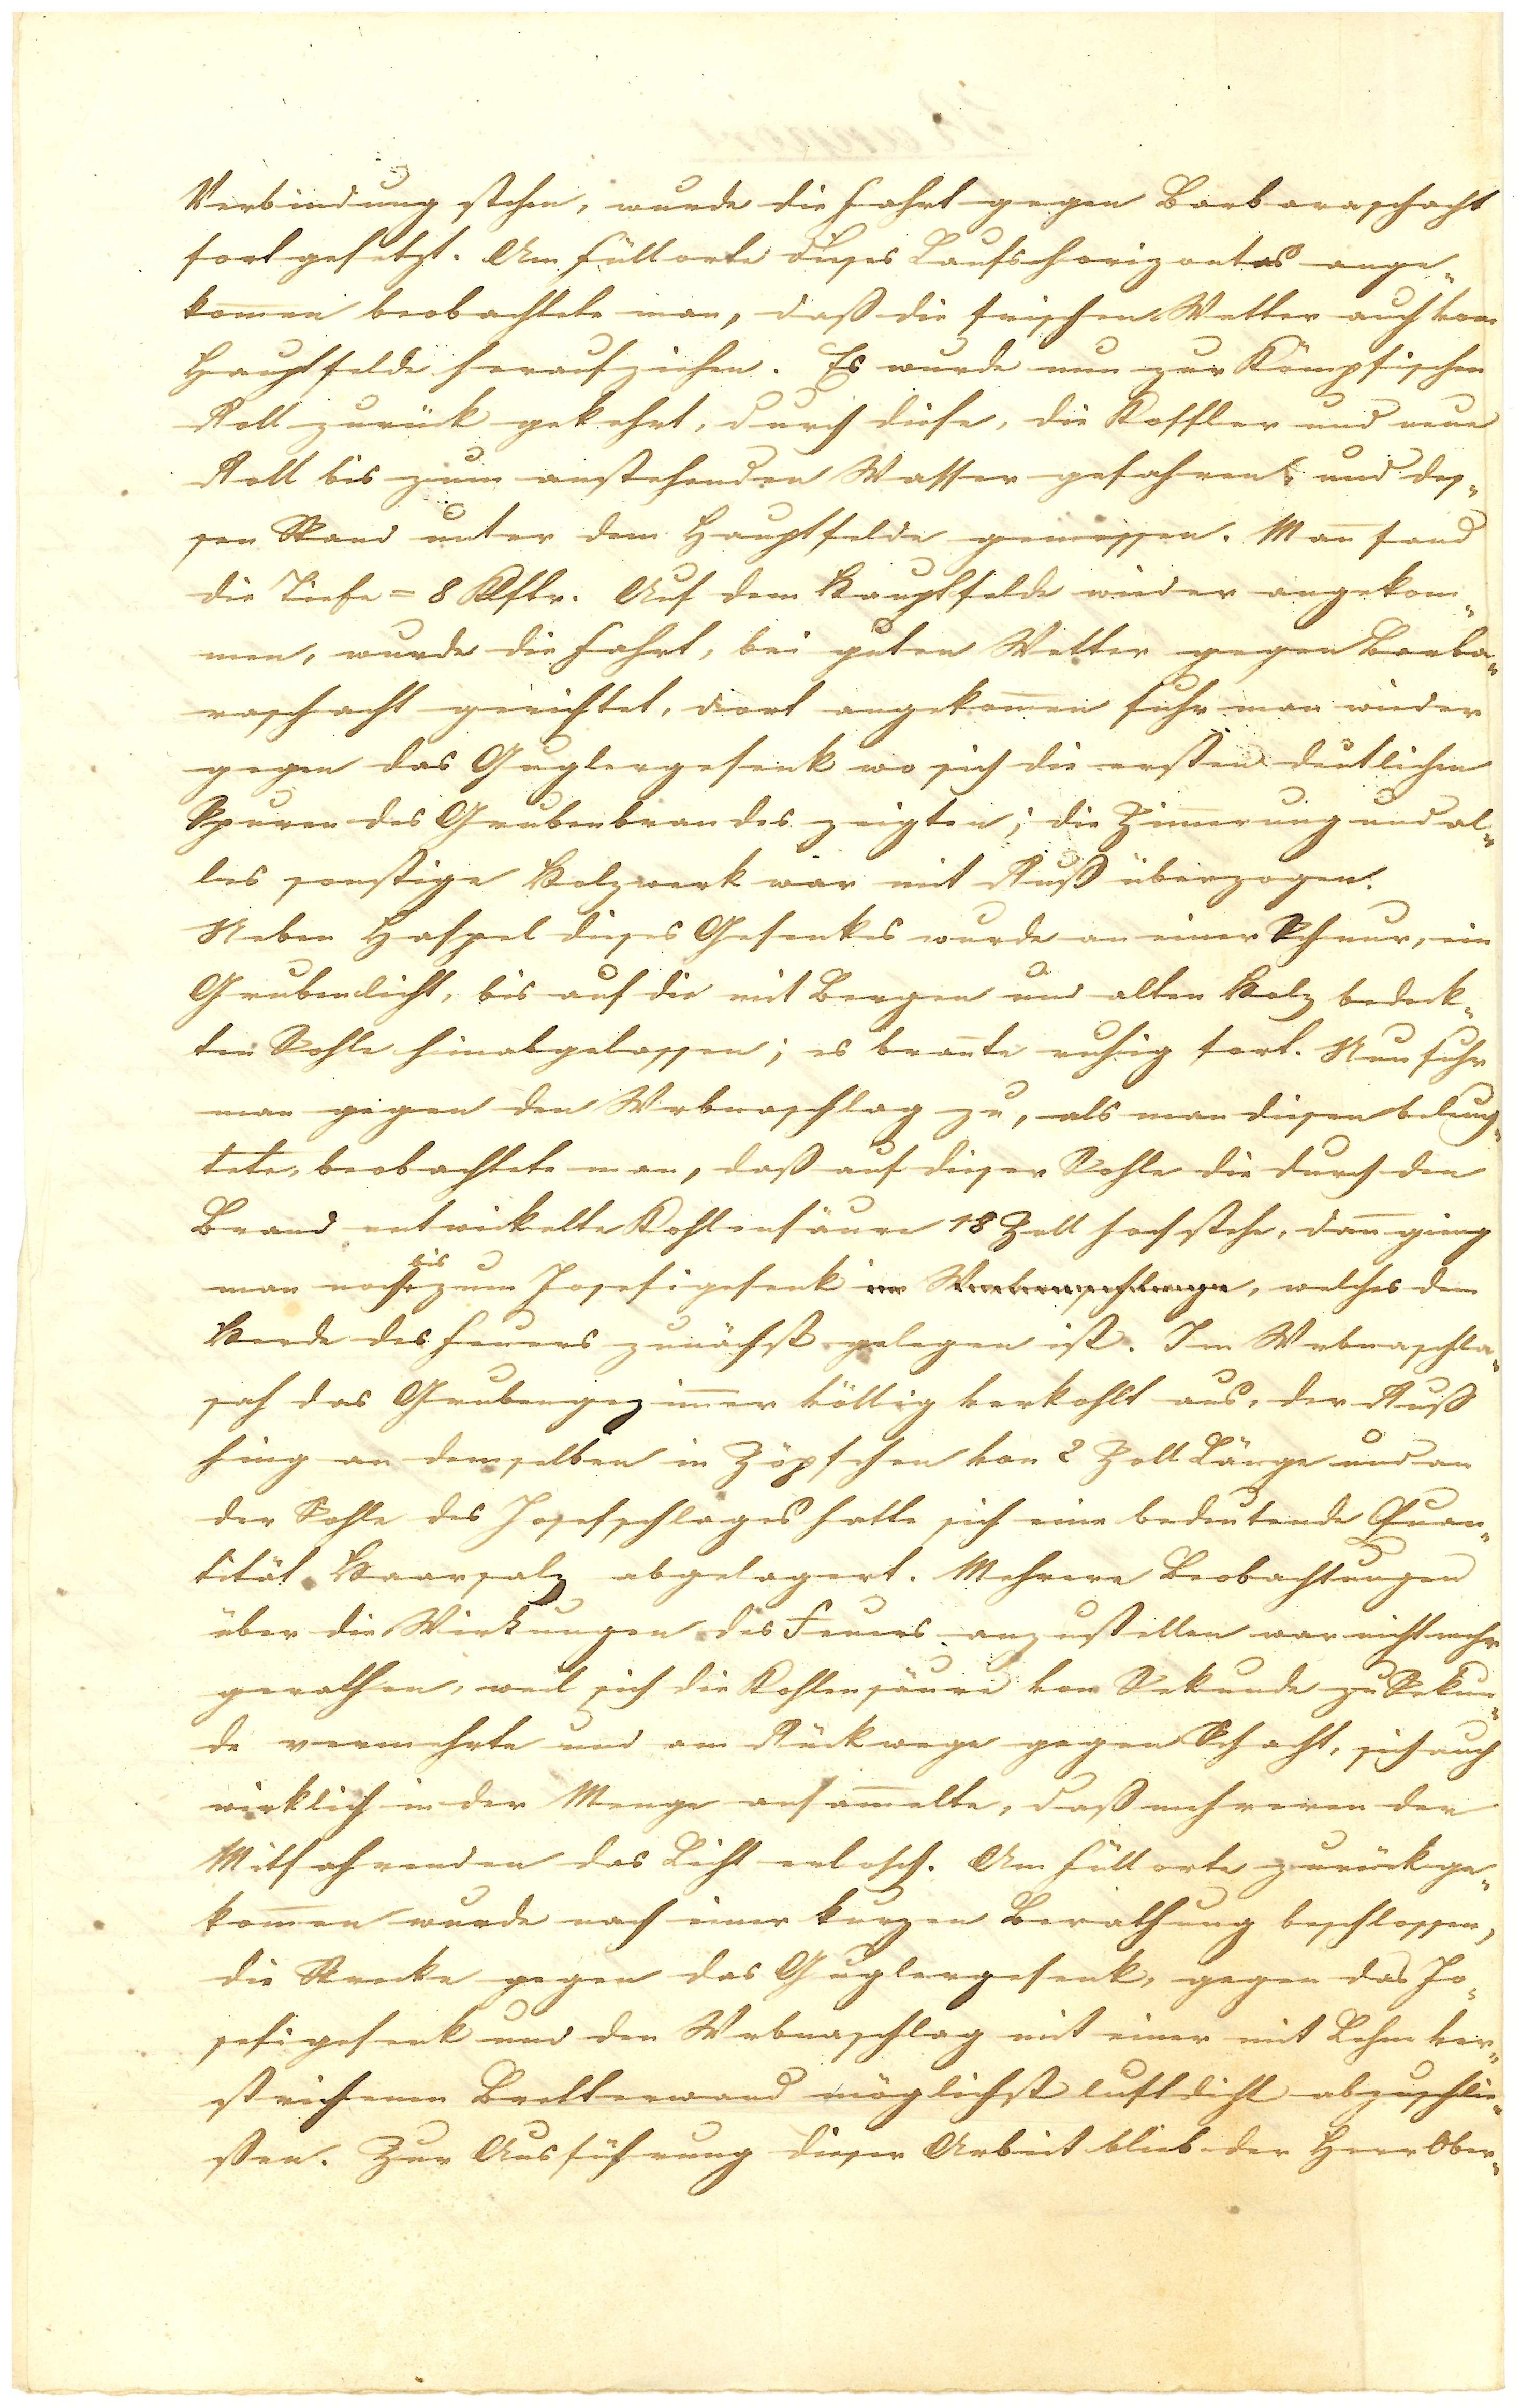 Verbindung stehen, wurde die Fahrt gegen Barbaraschacht
fortgesetzt. Am Füllorte dieses Laufshorizontes ange„
kom̅en beobachtete man, daß die frischen Wetter auch vom
Hauptfelde heraufziehen. Es wurde nun zur Kömpfischen
Roll zurück gekehrt, durch diese, die Koffler und neue
Roll bis zum anstehenden Wasser gefahren, und des„
sen Stand unter dem Hauptfelde gemessen. Man fand
die Tiefe = 8 Klftr. Auf dem Hauptfelde wieder angekom„
men, wurde die Fahrt, bei guten Wetter gegen Barba„
raschacht gerichtet, dort angekom̅en fuhr man wieder
gegen das Guglergesenk wo sich die ersten deutlichen
Spuren des Grubenbrandes zeigten; die Zim̅erung und al„
les sonstige Holzwerk war mit Ruß überzogen.
Neben Haspel dieses Gesenkes wurde an einer Schnur, ein
Grubenlicht, bis auf die mit Bergen und alten Holz bedeck„
ten Sohle hinabgelassen; es bran̅te ruhig fort. Nun fuhr
man gegen den Wrbnaschlag zu, als man diesen beleuch„
tete, beobachtete man, daß auf dieser Sohle die durch den
Brand entwickelte Kohlensäure 18 Zoll hoch stehe, dan̅ gieng
man noch bis zum Josefigesenk im Wrbnaschlage, welches dem
Herde des Feuers zunächst gelegen ist. Im Wrbnaschla„
sah das Grubengezim̅er völlig verkohlt aus, der Ruß
hing an demselben in Zöpfchen von 2 Zoll Länge und an
der Sohle des Josefschlages hatte sich eine bedeutende Quan„
tität Haarsalz abgelagert. Mehrere Beobachtungen
über die Wirkungen des Feuers anzustellen war nicht mehr
gerathen, weil sich die Kohlensäure von Sekunde zu Sekun„
de vermehrte und am Rückwege gegen Schacht, sich auch
wirklich in der Menge ansam̅elte, daß mehreren der
Mitfahrenden das Licht erlosch. Am Füllorte zurückge„
kom̅en wurde nach einer kurzen Berathung beschlossen,
die Strecke gegen das Guglergesenk, gegen das Jo„
sefigesenk und den Wrbnaschlag mit einer mit Lehm ver„
strichenen Bretterwand möglichst luftdicht abzuschlie„
ßen. Zur Ausführung dieser Arbeit blieb der Herr Ober„